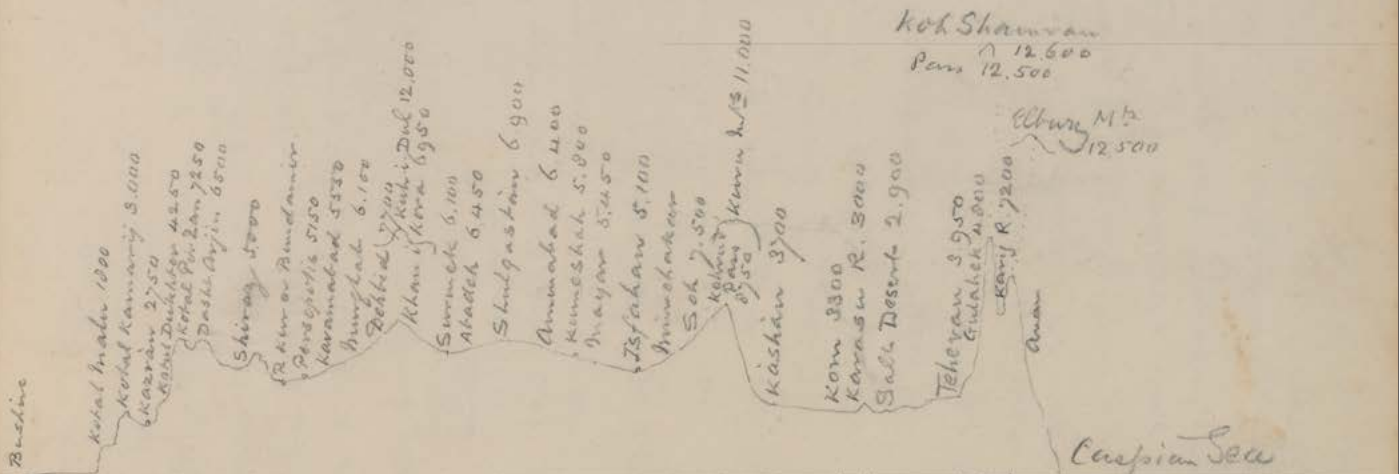 Bushire
Kotal Malu 1800
Kotal Kamarij 3.000
Kazrán 2750
Kotal Dukhter 4250
Kotal Pir Zan 7250
Dasht Arjin 6500
Shiraz 5.000
R Kur or Bendamir
Persepolis 5150
Karamabad 5550
Murghab 6.100
Dehbid 7700
Kuh i Dul 12.000
Khan i Kora 6950
Surmek 6.100
Abadeh 6.450
Shulgastán 6900
Aminabad 6400
Kumeshah 5.800
Mayar 5.450
Isfahan 5.100
Murchakar
Soh 7.500
Kohrud
Pass
8750
Kuru Mts 11.000
Káshán 3700
Kom 3300
Karasu R. 3000
Salt Desert 2.900
Teheran 3950
Gulahek 4.000
Karij R. 7200
Koh Shamran
12.600
Pass 12.500
Elburz Mts
12500
Caspian Sea